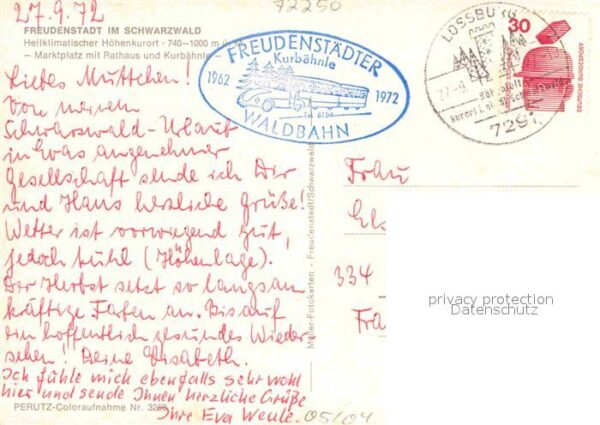 27.9.72
72250
FREUDENSTADT IM SCHWARZWALD
Heilklimatischer Höhenkurort · 740–1000 m ü
— Marktplatz mit Rathaus und Kurbähnle —
FREUDENSTÄDTER
Kurbähnle
1962 1972
Tel. 6154
WALDBAHN
LOSSBURG
27.-9.
7291
30
DEUTSCHE BUNDESPOST
Liebes Muttchen!
Von meinem
Schwarzwald-Urlaub
in was angenehmer
Gesellschaft sende ich Dir
und Hans herzliche Grüße!
Wetter ist vorwiegend gut,
jedoch kühl (Höhenlage).
Der Herbst setzt so langsam
kräftige Farben an. Bis auf
ein hoffentlich gesundes Wieder
sehen! Deine Elisabeth.
Ich fühle mich ebenfalls sehr wohl
hier und sende Ihnen herzliche Grüße
Ihre Eva Weule.
PERUTZ-Coloraufnahme Nr. 3260
05/04
Müller-Fotokarten - Freudenstadt/Schwarzwald
Frau
334
privacy protection
Datenschutz